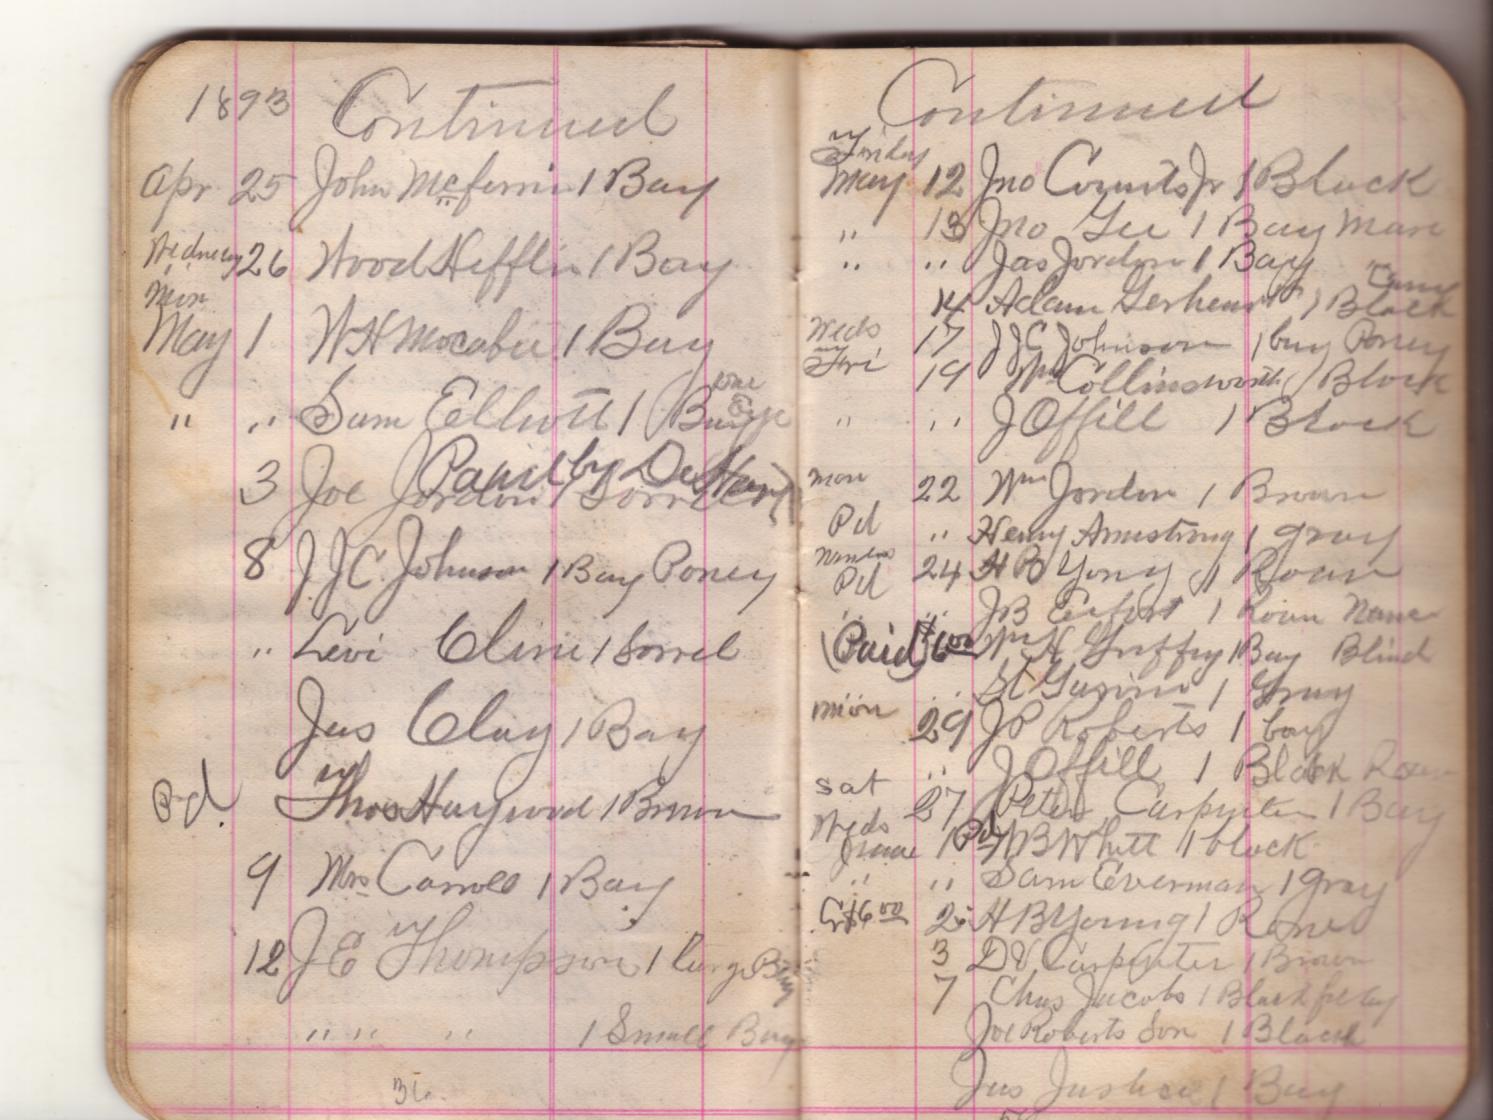 1893 Continued
Apr 25 John McFerrin 1 Bay
Wednesday 26 Wood Hefflin 1 Bay
Mon
May 1 W H Mocabee 1 Bay
one
" " Sam Elliott 1 Bay Eye
Paid by
3 Joe Jordon 1 Sorrel
8 J.J.C. Johnson 1 Bay Poney
" Levi Cline 1 Sorrel
Jas Clay 1 Bay
Pd. Thos Haywood 1 Brown
9 Mrs Carroll 1 Bay
12 J E Thompson 1 Large Bay
" " " 1 Small Bay
36
Continued
Friday
May 12 Jno Counts Jr 1 Black
" 13 Jno Gee 1 Bay Mare
" " Jas Jordon 1 Bay
14 Adam 1 Black
Weds 17 J J C Johnson 1 bay Poney
Fri 19 Wm Collinsworth 1 Black
" " J Offill 1 Black
Mon 22 Wm Jordon 1 Brown
Pd " Henry Armstrong 1 gray
Pd 24 H B Yong 1 Roan
" " J B 1 Roan
(Paid) $6.00 Wm H Griffey 1 Bay Blind
" 1 Gray
Mon 29 J P Roberts 1 bay
" J Offill 1 Black
Sat 27 Peter Carpenter 1 Bay
Weds
June 1 Pd W B Whitt 1 black
" " Sam Everman 1 gray
$6.00 2 H B Young 1 Rone
3 D V Carpenter 1 Brown
7 Chas Jacobs 1 Black
Joe Roberts Son 1 Black
Jas Justice 1 Bay